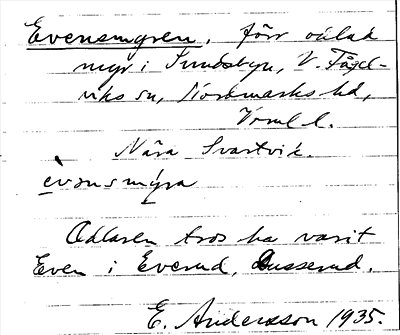 Evensmyren, förr odlad
myr i Sundsbyn, V. Fågel-
viks sn, Nordmarks hd,
Vrml l.
Nära Svartvik.
evənsmýra
Odlaren tros ha varit
Even i Everud, Gusserud.
E. Andersson 1935.